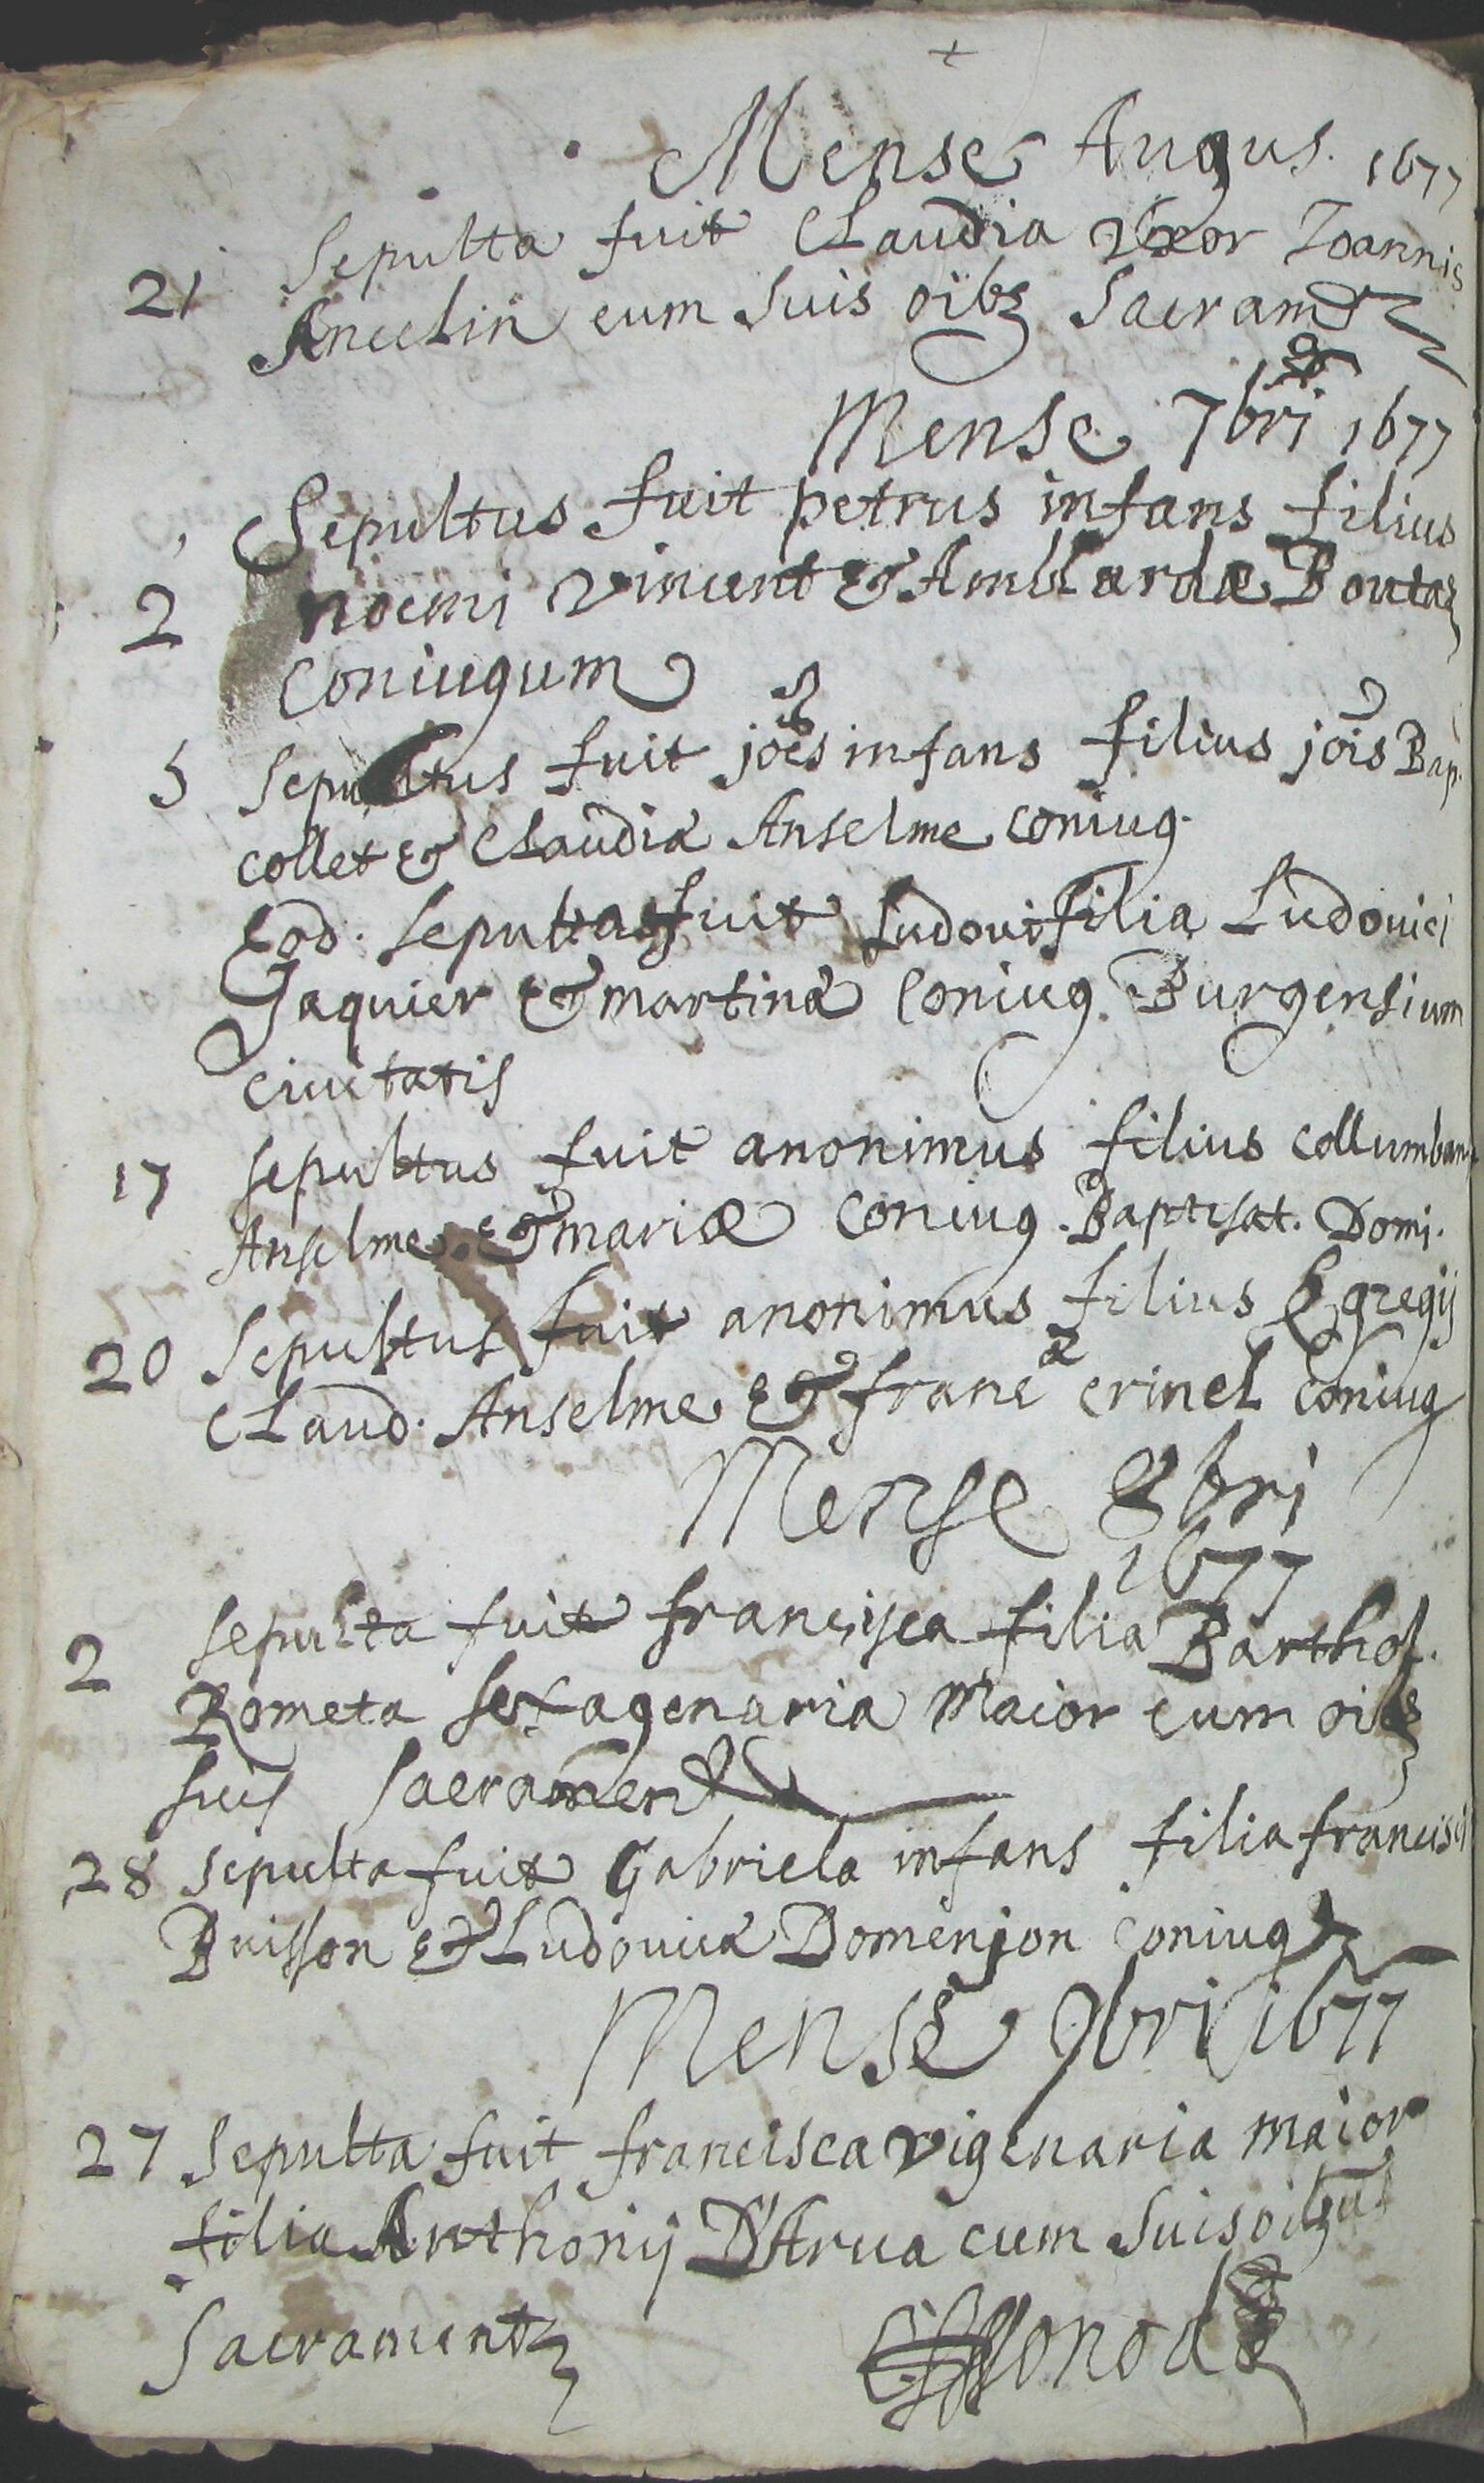 +
Mense Augus. 1677
21 Sepulta fuit Claudia Uxor Joannis
Ancelin cum suis oibz Sacram
Mense 7bri 1677
Sepultus fuit petrus infans filius
2 noemi Vincent & Amblardæ Boutaz
Coniugum
5 Sepultus fuit joes infans filius jois Bap.
collet & Claudiæ Anselme coniug.
Eod. Sepulta fuit Ludovi filia Ludovici
Jaquier & martinæ Coniug. Burgensium
civitatis
17 Sepultus fuit anonimus filius collumban
Anselme & mariæ Coniug. Baptisat. Domi.
20 Sepultus fuit anonimus filius Egregij
Claud. Anselme & francæ crinel coniug
Mense 8bri
1677
2 Sepulta fuit francisca filia Barthol.
Rometa sexagenaria Maior cum oibz
suis Sacrament
28 Sepulta fuit Gabriela infans filia francisci
Buisson & Ludovicæ Domenjon coniug
Mense 9bri 1677
27 Sepulta fuit francisca vigenaria maior
filia Anthonij D'Arva cum suis oibus
Sacrament